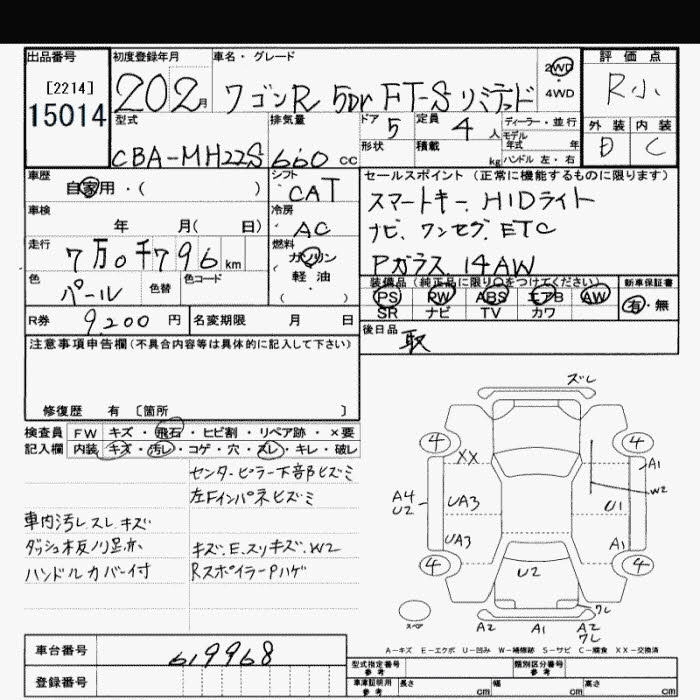 出品番号 初度登録年月 車名・グレード 評価点
[2214] 15014
202月 ワゴンR 5Dr FT-S リミテッド 2WD・4WD R小
型式 排気量 ドア 定員 ディーラー・並行 外装 内装
CBA-MH22S 660cc 5 4人 モデル年式 年 D C
形状 積載 kg ハンドル 左・右
車歴 シフト セールスポイント(正常に機能するものに限ります)
自家用・( ) CAT スマートキー. HIDライト
車検 冷房
年 月( 日) AC ナビ. ワンセグ. ETC
走行 燃料
7万0千796km ガソリン Pガラス. 14AW
色 色替 色コード 軽油
パール ( ) 装備品(純正品に限り○をつけてください) 新車保証書
PS PW ABS エアB AW 有・無
SR ナビ TV カワ
R券 9200円 名変期限 月 日 後日品
取
注意事項申告欄(不具合内容等は具体的に記入して下さい)
修復歴 有 〔箇所 〕
検査員 FW キズ・飛石・ヒビ割・リペア跡・×要
記入欄 内装 キズ・汚レ・コゲ・穴・スレ・キレ・破レ
センターピラー下部ヒズミ
左Fインパネヒズミ
車内汚レ スレ キズ
ダッシュ板ノリ足亦 キズ.E.スリキズ.W2
ハンドルカバー付 RスポイラーPハゲ
ズレ
4 4
XX A1
W2
A4 UA3 U1
U2
UA3 A1
4 4
U2
ワレ
スペア A2 A1 A2
ワレ
A-キズ E-エクボ U-凹み W-補修跡 S-サビ C-腐食 XX-交換済
車台番号 619968
型式指定番号 参考 類別区分番号 参考
登録番号 車庫証明用 参考 長さ cm 幅 cm 高さ cm